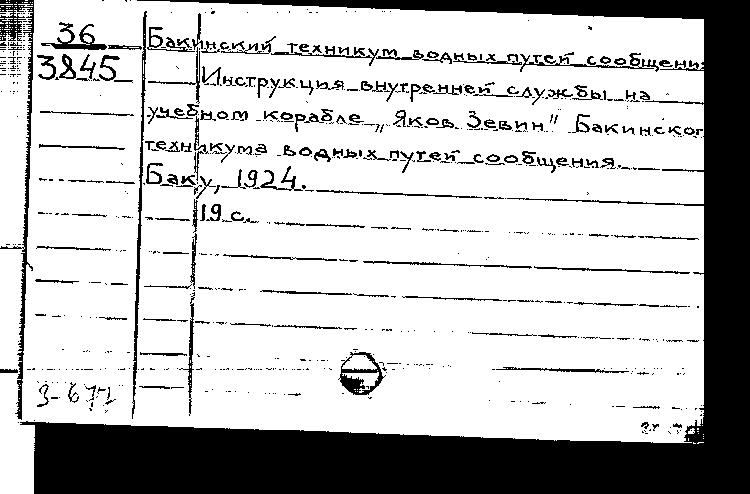 36
3845
Бакинский техникум водных путей сообщени
Инструкция внутренней службы на
учебном корабле „Яков Зевин" Бакинског
техникума водных путей сообщения.
Баку, 1924.
19 с.
3-677